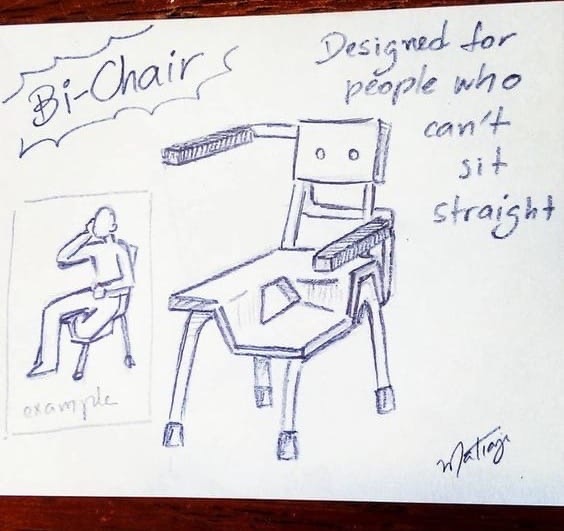 Bi-Chair
Designed for
people who
can't
sit
straight
example